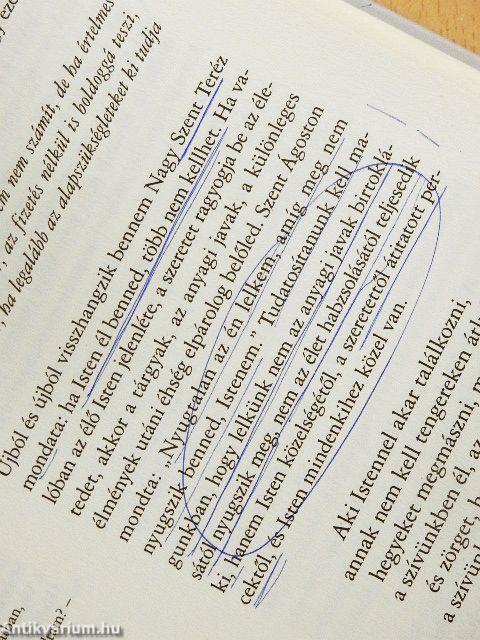 em nem számít, de ha értelmes
, az fizetés nélkül is boldoggá teszi,
, ha legalább az alapszükségleteket ki tudja
Újból és újból visszhangzik bennem Nagy Szent Teréz
mondata: ha Isten él benned, több nem kelllet. Ha va-
lóban az élő Isten jelenléte, a szeretet ragyogja be az éle-
tedet, akkor a tárgyak, az anyagi javak, a különleges
élmények utáni éhség elpárolog belőled. Szent Ágoston
mondta: „Nyugtalan az én lelkem, amíg meg nem
nyugszik benned, Istenem.” Tudatosítanunk kell ma-
gunkban, hogy lelkünk nem az anyagi javak birtoklá-
sáról nyugszik meg, nem az élet habzsolásától teljesedik
ki, hanem Isten közelségétől, a szeretettől átitatott per-
cektől és Isten mindenkihez közel van.
Aki Istennel akar találkozni,
annak nem kell tengereken átl
hegyeket megmászni, m
a szívünkben él, az
és zörget, h
a szívül
antikvárium.hu